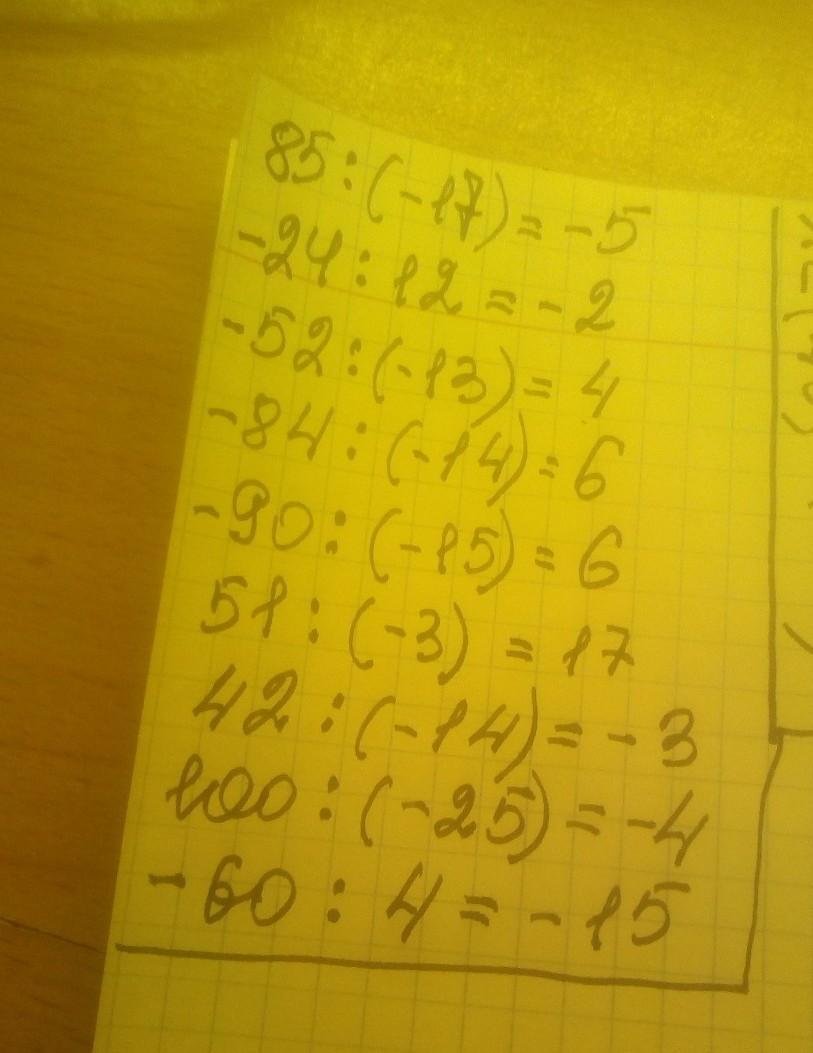 85:(-17)=-5
-24:12=-2
-52:(-13)=4
-84:(-14)=6
-90:(-15)=6
51:(-3)=17
42:(-14)=-3
100:(-25)=-4
-60:4=-15